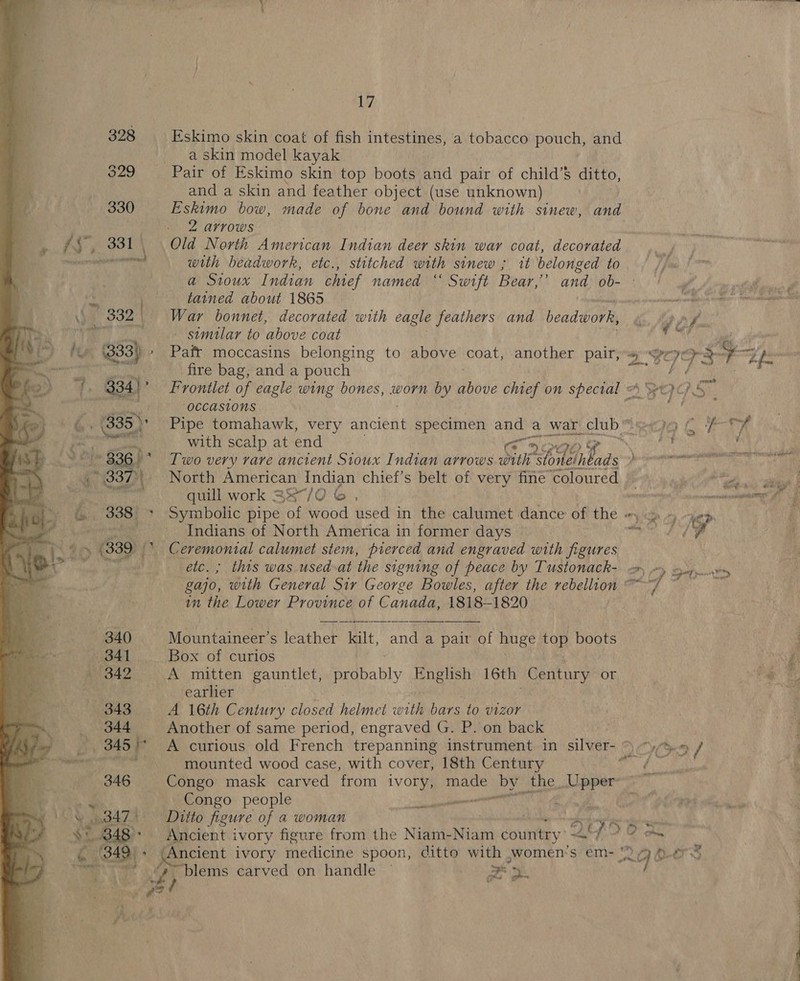 17
328 Eskimo skin coat of fish intestines, a tobacco pouch, and
a skin model kayak
329 Pair of Eskimo skin top boots and pair of child's ditto,
and a skin and feather object (use unknown)
330 Eskimo bow, made of bone and bound with sinew, and
2 arrows
331 Old North American Indian deer skin war coat, decorated
with beadwork, etc., stitched with sinew ; it belonged to
a Sioux Indian chief named “ Swift Bear,” and ob-
tained about 1865
332 War bonnet, decorated with eagle feathers and beadwork,
similar to above coat
333 Pair moccasins belonging to above coat, another pair,
fire bag, and a pouch
334 Frontlet of eagle wing bones, worn by above chief on special
occasions
335 Pipe tomahawk, very ancient specimen and a war club
with scalp at end
336 Two very rare ancient Sioux Indian arrows with stone heads
337 North American Indian chief's belt of very fine coloured
quill work
338 Symbolic pipe of wood used in the calumet dance of the
Indians of North America in former days
339 Ceremonial calumet stem, pierced and engraved with figures
etc. ; this was used at the signing of peace by Tustonack-
gajo, with General Sir George Bowles, after the rebellion
in the Lower Province of Canada, 1818–1820
340 Mountaineer's leather kilt, and a pair of huge top boots
341 Box of curios
342 A mitten gauntlet, probably English 16th Century or
earlier
343 A 16th Century closed helmet with bars to vizor
344 Another of same period, engraved G. P. on back
345 A curious old French trepanning instrument in silver-
mounted wood case, with cover, 18th Century
346 Congo mask carved from ivory, made by the Upper
Congo people
347 Ditto figure of a woman
348 Ancient ivory figure from the Niam-Niam country
349 Ancient ivory medicine spoon, ditto with women's em-
blems carved on handle